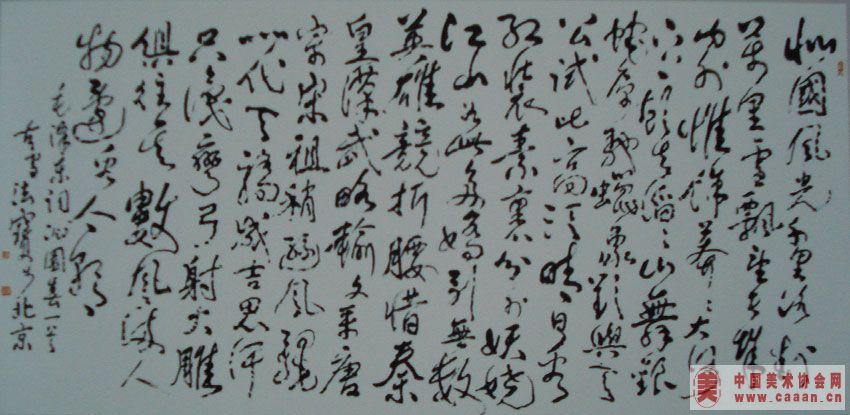 北國風光千里冰封
萬里雪飄望長城
內外惟餘莽々大河
上下頓失滔々山舞銀
蛇原馳蠟象欲與天
公試比高須晴日看
紅裝素裹分外妖嬈
江山如此多嬌引無數
英雄競折腰惜秦
皇漢武略輸文采唐
宗宋祖稍遜風騷
一代天驕成吉思汗
只識彎弓射大雕
俱往矣數風流人
物還看今朝
毛澤東詞沁園春一首
法寶於北京
中国美术协会网
www.caaan.cn